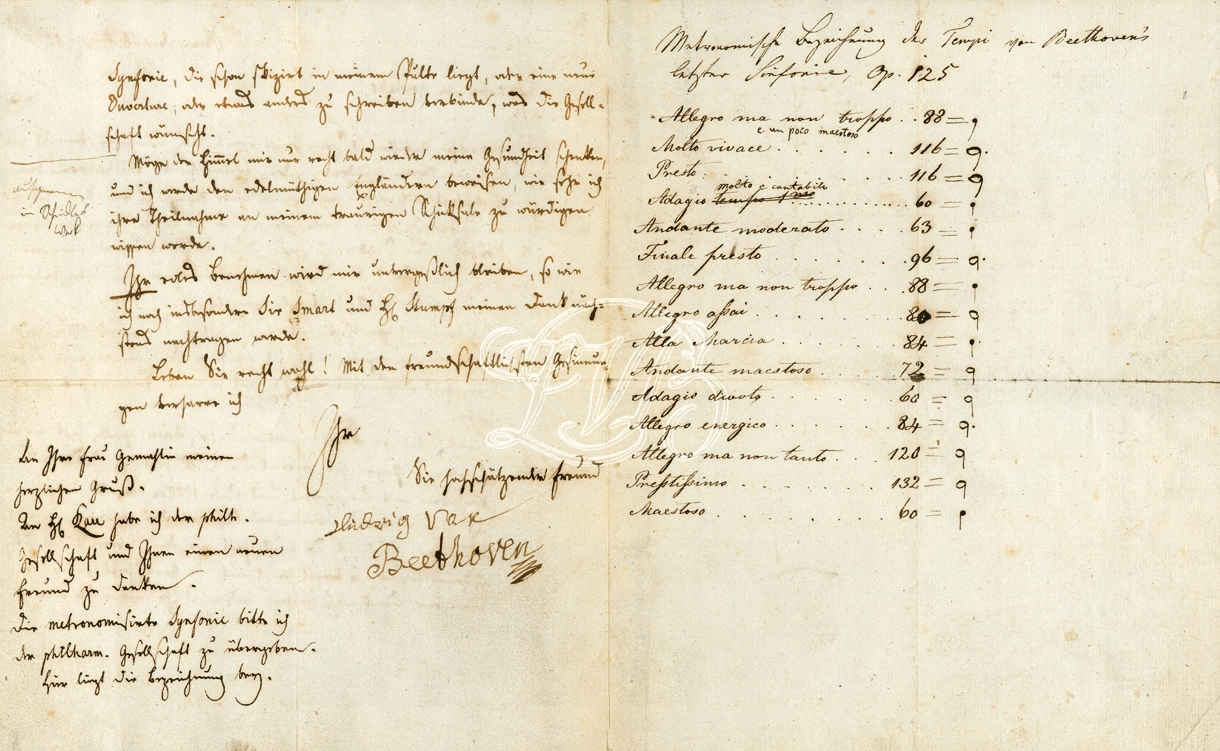 Synfonie, die schon skizirt in meinem Pulte liegt, oder eine neue
Ouverture, oder etwas anders zu schreiben verbinde, was die Gesell-
schaft wünscht.
Möge der Himmel mir nur recht bald wieder meine Gesundheit schenken,
und ich werde den edelmüthigen Engländern beweisen, wie sehr ich
ihre Theilnahme an meinem traurigen Schicksale zu würdigen
wissen werde.
Ihr edles Benehmen wird mir unvergeßlich bleiben, so wie
ich noch insbesondere Sir Smart und H. Stumpf meinen Dank näch-
stens nachtragen werde.
Leben Sie recht wohl! Mit den freundschaftlichsten Gesinnun-
gen verharre ich
Ihr
Sie hochschätzender Freund
Ludwig van
Beethoven
in Schindlers
Werk
An Ihre Frau Gemahlin meinen
herzlichen Gruß.
An H. Rau habe ich der philh.
Gesellschaft und Ihnen einen neuen
Freund zu danken.
Die metronomisirte Synfonie bitte ich
der philharm. Gesellschaft zu übergeben.
Hier liegt die Bezeichnung bey.
Metronomische Bezeichnung der Tempi von Beethoven's
letzter Sinfonie, Op. 125
Allegro ma non troppo . . 88 = 𝅘𝅥
e un poco maestoso
Molto vivace . . . . . . . . 116 = 𝅗𝅥.
Presto . . . . . . . . . 116 = 𝅗𝅥
molto e cantabile
Adagio tempo 1mo . . . . . . . . 60 = 𝅘𝅥
Andante moderato . . . . 63 = 𝅘𝅥
Finale presto . . . . . . . 96 = 𝅗𝅥.
Allegro ma non troppo . . 88 = 𝅘𝅥
Allegro assai . . . . . . . 80 = 𝅗𝅥
Alla Marcia . . . . . . . 84 = 𝅘𝅥.
Andante maestoso . . . . 72 = 𝅗𝅥
Adagio divoto . . . . . . 60 = 𝅗𝅥
Allegro energico . . . . . . 84 = 𝅗𝅥.
Allegro ma non tanto . . . 120 = 𝅗𝅥
Prestissimo . . . . . . . 132 = 𝅗𝅥
Maestoso . . . . . . . . . 60 = 𝅘𝅥
LVB